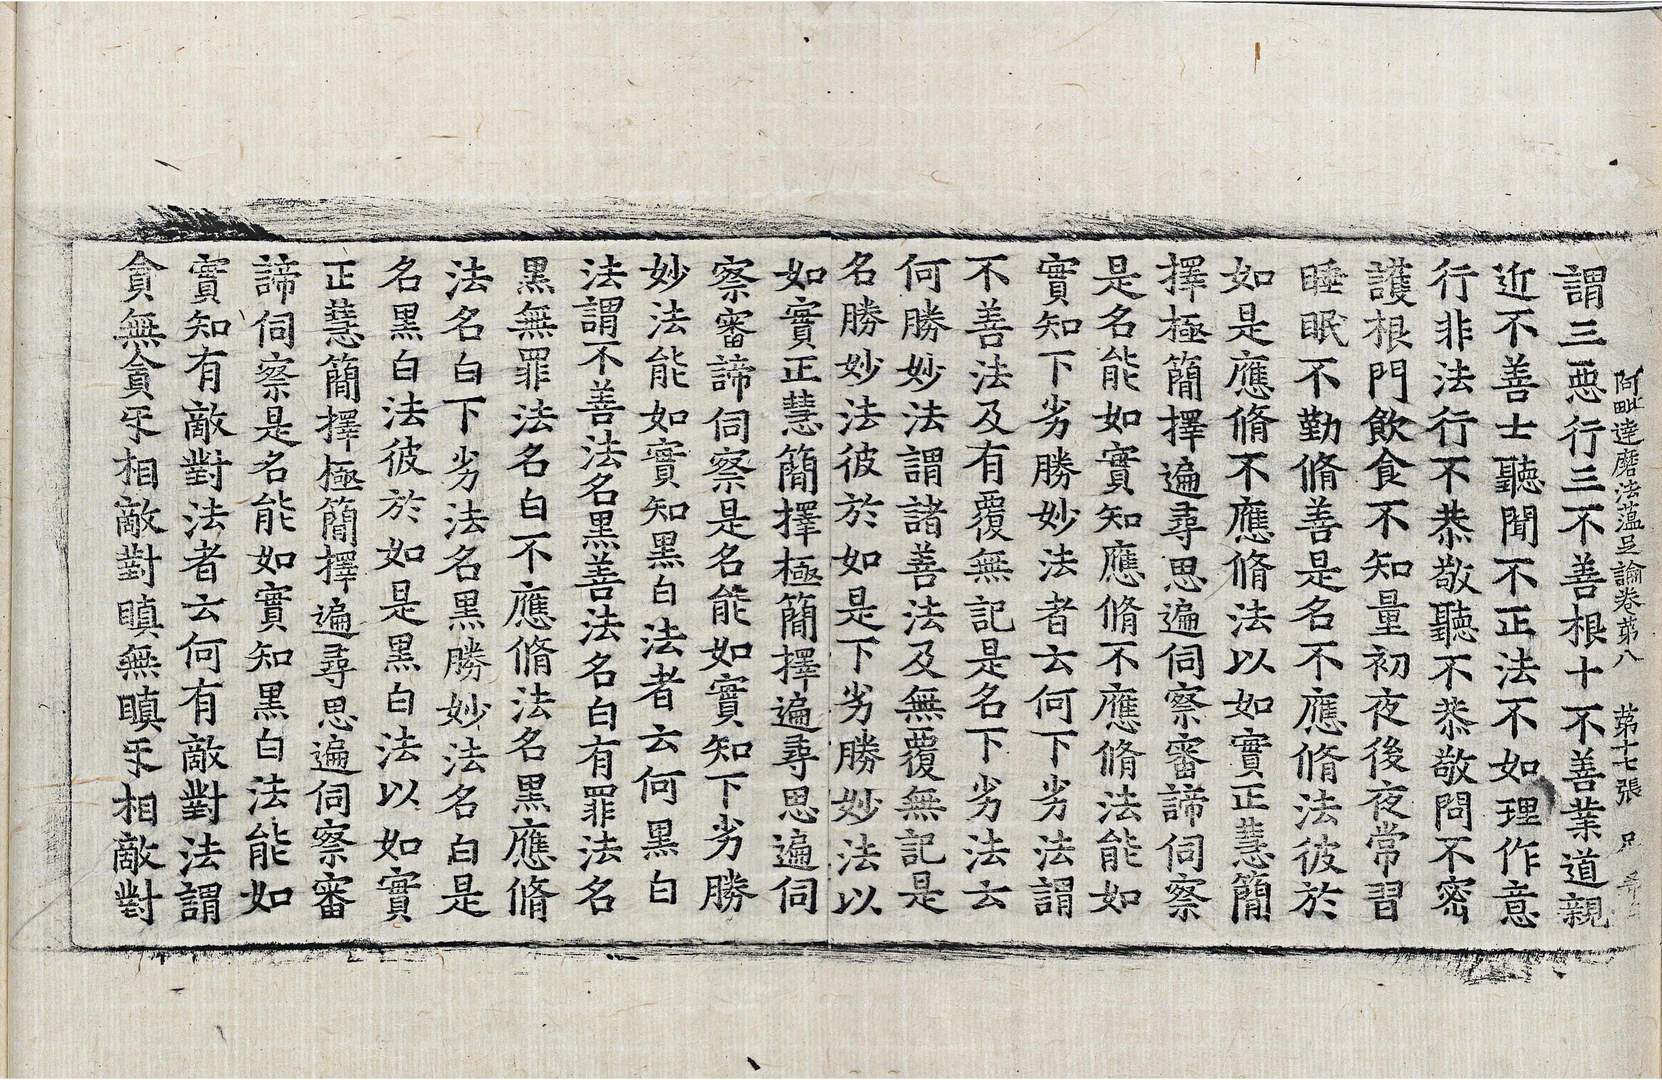 阿毗達磨法蘊足論卷苐八 苐十七張 兄
謂三惡行三不善根十不善業道親
近不善士聽聞不正法不如理作意
行非法行不恭敬聽不恭敬問不密
護根門飲食不知量初夜後夜常習
睡眠不勤脩善是名不應脩法彼於
如是應脩不應脩法以如實正慧簡
擇極簡擇遍尋思遍伺察審諦伺察
是名能如實知應脩不應脩法能如
實知下劣勝妙法者云何下劣法謂
不善法及有覆無記是名下劣法云
何勝妙法謂諸善法及無覆無記是
名勝妙法彼於如是下劣勝妙法以
如實正慧簡擇極簡擇遍尋思遍伺
察審諦伺察是名能如實知下劣勝
妙法能如實知黑白法者云何黑白
法謂不善法名黑善法名白有罪法名
黑無罪法名白不應脩法名黑應脩
法名白下劣法名黑勝妙法名白是
名黑白法彼於如是黑白法以如實
正慧簡擇極簡擇遍尋思遍伺察審
諦伺察是名能如實知黑白法能如
實知有敵對法者云何有敵對法謂
貪無貪㸦相敵對瞋無瞋㸦相敵對